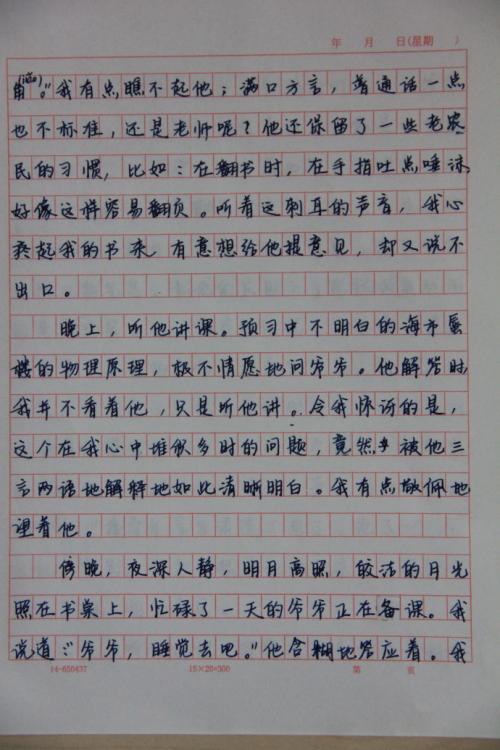 年 月 日(星期 )
角(jiǎo)。"我有点瞧不起他；满口方言，普通话一点
也不标准，还是老师呢？他还保留了一些老农
民的习惯，比如：在翻书时，在手指吐点唾沫
好像这样容易翻页。听着这刺耳的声音，我心
疼起我的书来，有意想给他提意见，却又说不
出口。
晚上，听他讲课。预习中不明白的海市蜃
楼的物理原理，极不情愿地问爷爷。他解答时
我并不看着他，只是听他讲。令我惊讶的是，
这个在我心中堆积多时的问题，竟然被他三
言两语地解释地如此清晰明白。我有点敬佩地
望着他。
傍晚，夜深人静，明月高照，皎洁的月光
照在书桌上，忙碌了一天的爷爷正在备课。我
说道："爷爷，睡觉去吧。"他含糊地答应着。我
14-650437 15×20=300 第 页